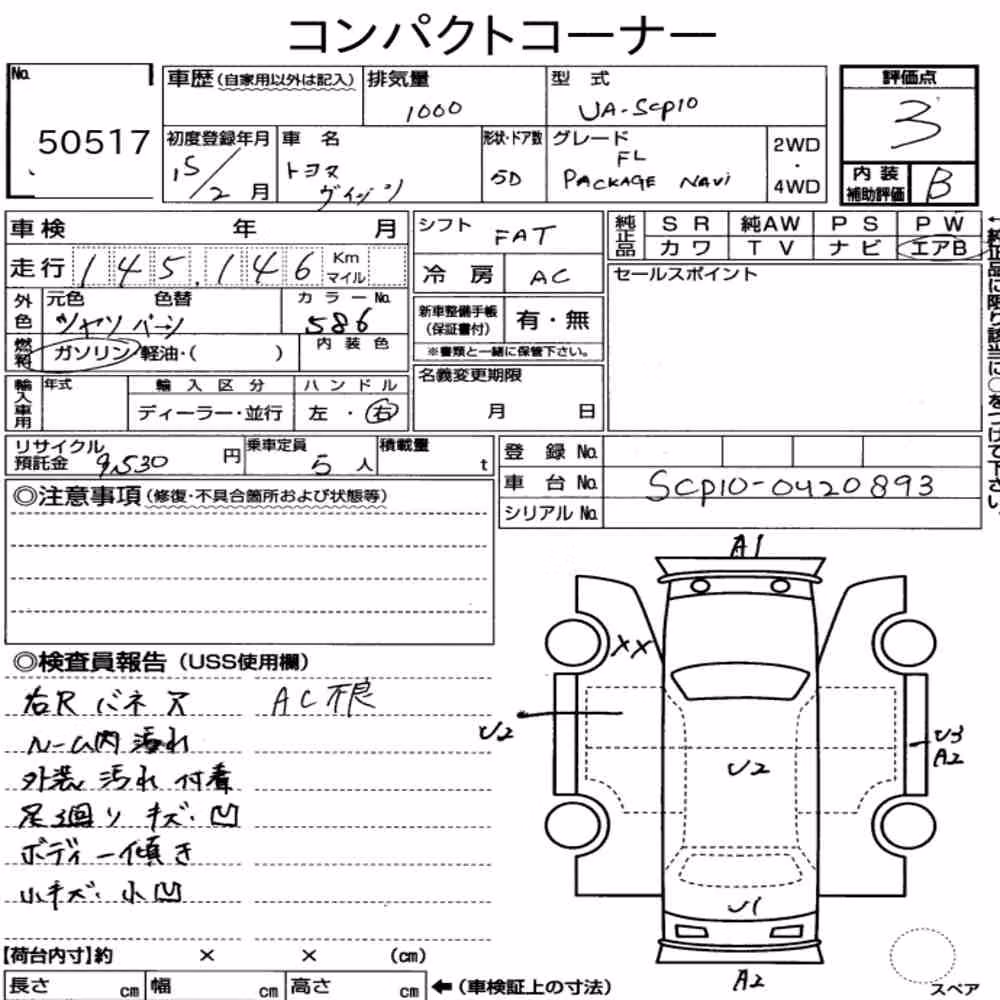 コンパクトコーナー
No.
50517
車歴(自家用以外は記入)
排気量
1000
型式
UA-SCP10
評価点
3
初度登録年月
15/2月
車名
トヨタ
ヴィッツ
形状・ドア数
5D
グレード
FL
PACKAGE NAVI
2WD
・
4WD
内装
補助評価
B
車検 年 月
走行 145,146 Km
マイル
シフト
FAT
冷房 AC
純正品
SR 純AW PS PW
カワ TV ナビ エアB
←純正品に限り該当に○をつけて下さい。
セールスポイント
外色
元色 色替
カラーNo.
586
内装色
燃料
ガソリン・軽油・( )
新車整備手帳
(保証書付)
有・無
※書類と一緒に保管下さい。
輸入車用
年式
輸入区分
ディーラー・並行
ハンドル
左・右
名義変更期限
月 日
リサイクル
預託金 9,530円
乗車定員
5人
積載量
t
登録No.
車台No. SCP10-0420893
シリアルNo.
◎注意事項(修復・不具合箇所および状態等)
◎検査員報告(USS使用欄)
右R バネ
AC不良
ルーム内 汚れ
外装 汚れ 付着
足回り キズ・凹
ボディー傾き
小キズ・小凹
A1
XX
U2
U2
U3
A2
U1
A2
スペア
【荷台内寸】約 × × (cm)
長さ cm 幅 cm 高さ cm ←(車検証上の寸法)